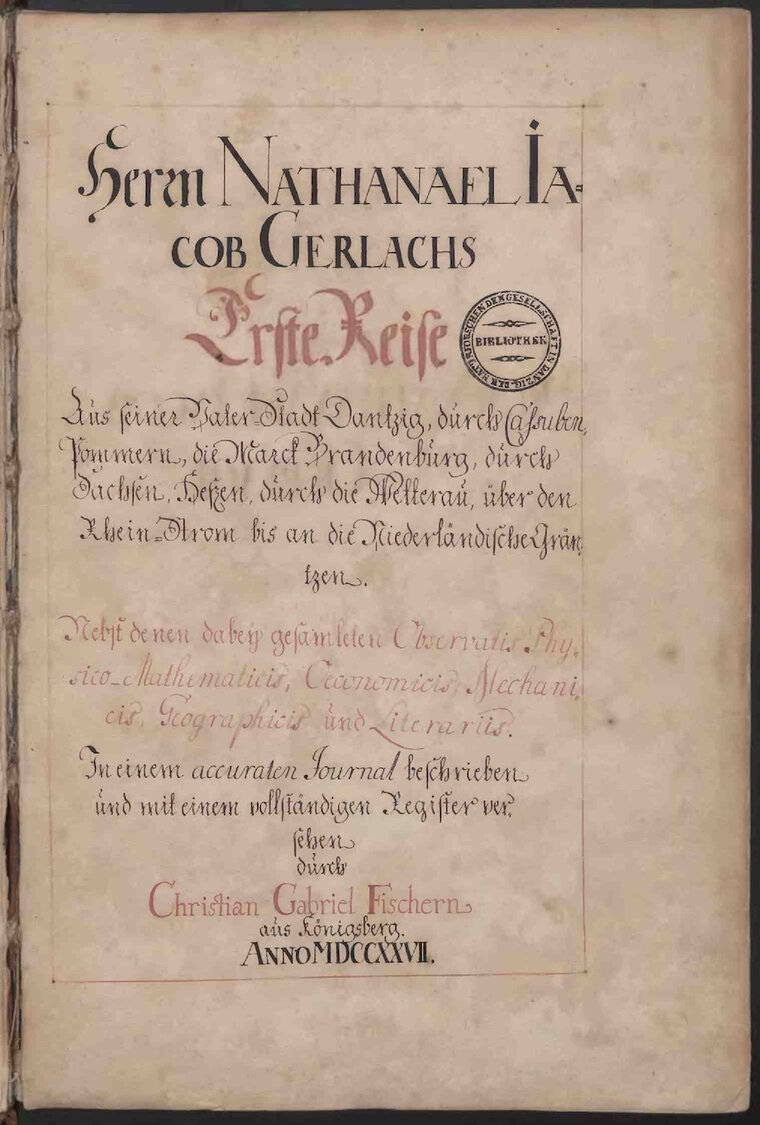 Herrn NATHANAEL IA=
COB GERLACHS
Erste Reise
BIBLIOTHEK
DER NATURFORSCHENDEN GESELLSCHAFT IN DANZIG.
Aus seiner Vater=Stadt Dantzig, durch Cassuben,
Pommern, die Marck Brandenburg, durch
Sachsen, Heßen, durch die Wetterau, über den
Rhein=Strom bis an die Niederländische Grän,
tzen.
Nebst denen dabey gesamleten Observatis Phy,
sico-Mathematicis, Oeconomicis, Mechani,
cis, Geographicis und Literariis.
In einem accuraten Journal beschrieben
und mit einem vollständigen Register ver,
sehen
durch
Christian Gabriel Fischern
aus Königsberg.
ANNO MDCCXXVII.